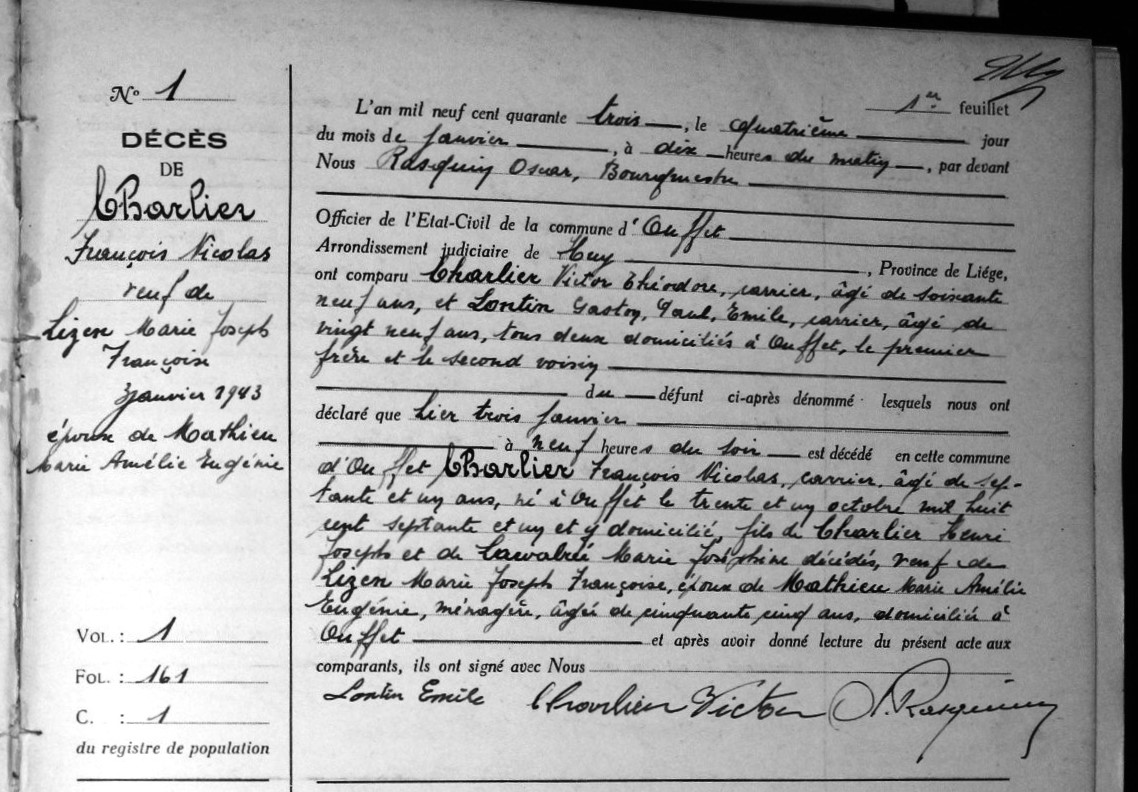 N° 1
DÉCÈS
DE
Charlier
François Nicolas
veuf de
Lizen Marie Joseph
Françoise
3 janvier 1943
époux de Mathieu
Marie Amélie Eugénie
VOL. : 1
FOL. : 161
C. : 1
du registre de population
1er feuillet
L'an mil neuf cent quarante trois, le quatrième jour
du mois de janvier, à dix heures du matin, par devant
Nous Rasquin Oscar, Bourgmestre
Officier de l'Etat-Civil de la commune d'Ouffet
Arrondissement judiciaire de Huy, Province de Liége,
ont comparu Charlier Victor Théodore, carrier, âgé de soixante
neuf ans, et Lontin Gaston, Paul, Emile, carrier, âgé de
vingt neuf ans, tous deux domiciliés à Ouffet, le premier
frère et le second voisin
du défunt ci-après dénommé lesquels nous ont
déclaré que hier trois janvier
à neuf heures du soir est décédé en cette commune
d'Ouffet Charlier François Nicolas, carrier, âgé de sep-
tante et un ans, né à Ouffet le trente et un octobre mil huit
cent septante et un et y domicilié, fils de Charlier Henri
Joseph et de Lawalrée Marie Joséphine décédés, veuf de
Lizen Marie Joseph Françoise, époux de Mathieu Marie Amélie
Eugénie, ménagère, âgée de cinquante cinq ans, domiciliée à
Ouffet et après avoir donné lecture du présent acte aux
comparants, ils ont signé avec Nous
Lontin Emile Charlier Victor O. Rasquin